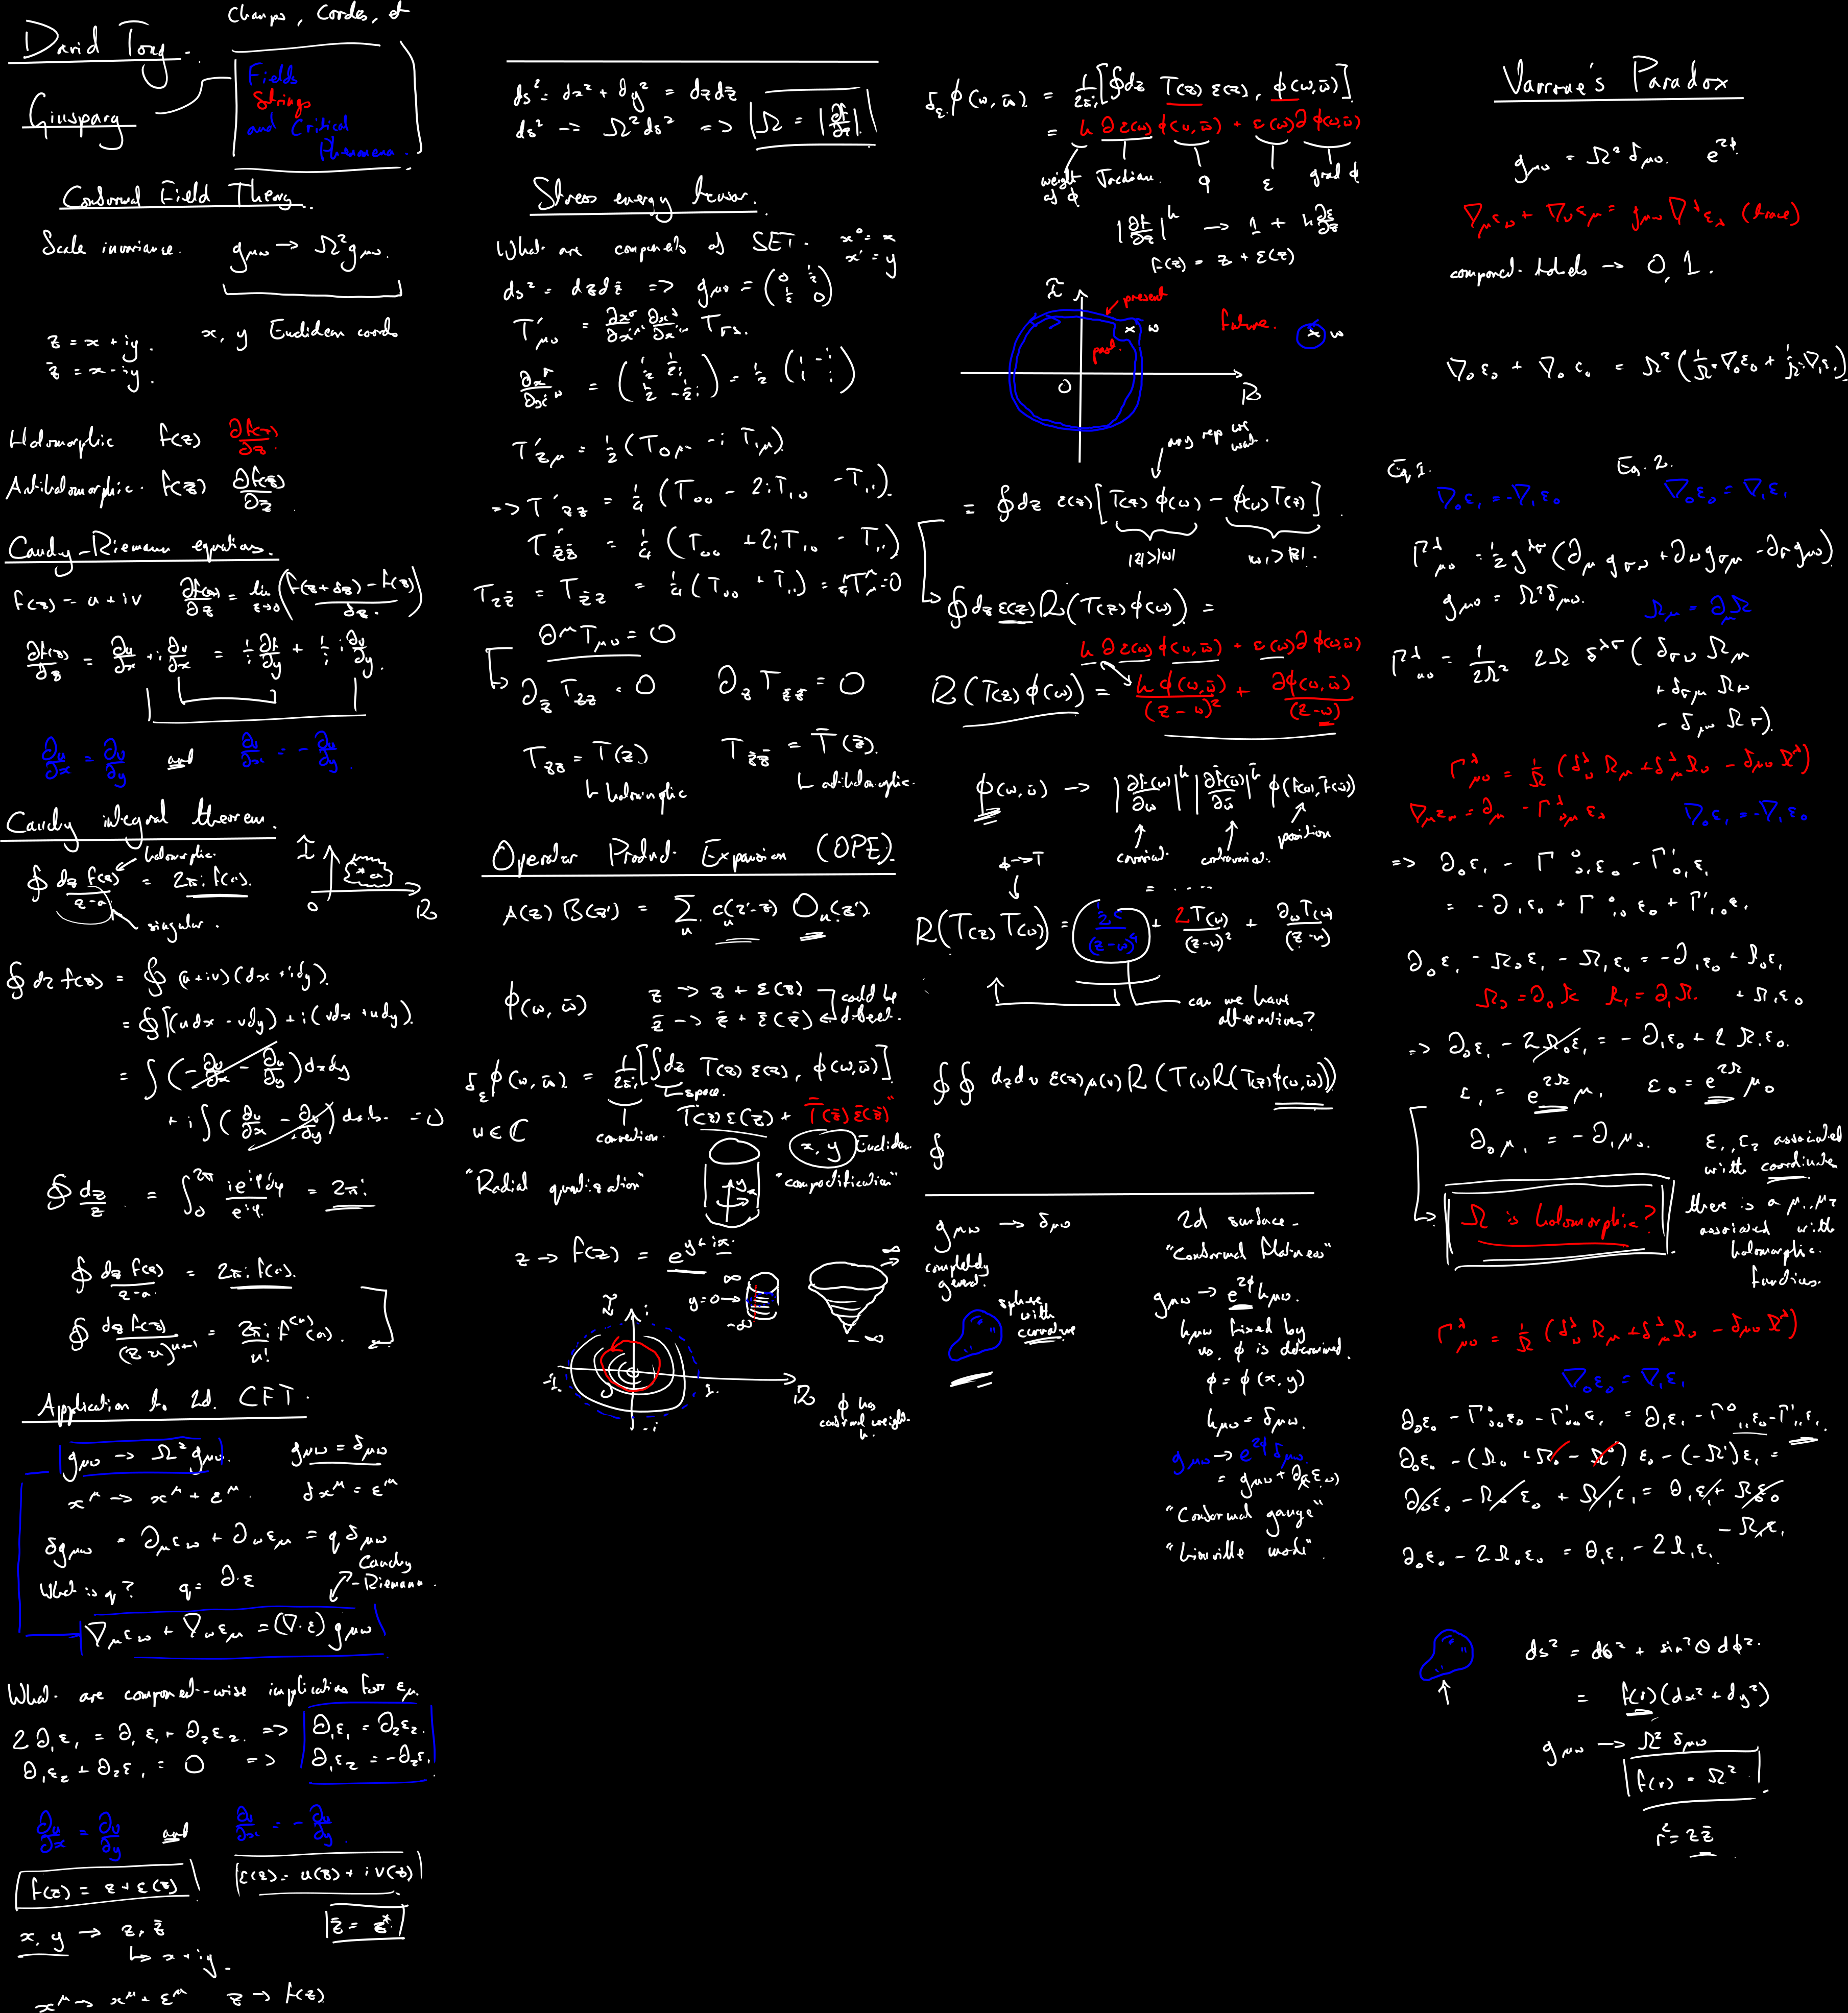 David Tong.
Champs, Cordes, et
Ginsparg
Fields
Strings
and Critical
Phenomena.
Conformal Field Theory.
Scale invariance. g_μν → Ω² g_μν.
z = x + iy.
z̄ = x - iy.
x, y Euclidean coords
Holomorphic f(z) ∂f(z)/∂z̄
Antiholomorphic. f(z̄) ∂f(z̄)/∂z.
Cauchy-Riemann equations.
f(z) = u + iv ∂f(z)/∂z = lim z→0 (f(z+δz) - f(z) / δz.)
∂f(z)/∂z = ∂u/∂x + i ∂v/∂x = 1/i ∂f/∂y + 1/i i ∂v/∂y.
∂u/∂x = ∂v/∂y and ∂v/∂x = - ∂u/∂y.
Cauchy integral theorem.
holomorphic.
∮ dz f(z)/z-a = 2πi f(a).
singular.
I
x a
0
R
∮ dz f(z) = ∮ (u+iv)(dx + idy).
= ∮ [(udx - vdy) + i(vdx + udy).
= ∫ (-∂v/∂x - ∂u/∂y) dxdy
+ i∫ (∂u/∂x - ∂v/∂y) dxdy. = 0
∮ dz/z = ∫₀^2π ie^iφ dφ/e^iφ = 2πi
∮ dz f(z)/z-a = 2πi f(a).
∮ dz f(z)/(z-a)^n+1 = 2πi/n! f^(n)(a).
Application to 2d. CFT.
g_μν → Ω² g_μν. g_μν = δ_μν
x^μ → x^μ + ε^μ. δx^μ = ε^μ
δg_μν = ∂_μ ε_ν + ∂_ν ε_μ = q δ_μν
What is q? q = ∂·ε
Cauchy
-Riemann.
∇_μ ε_ν + ∇_ν ε_μ = (∇·ε) g_μν
What are component-wise implications for ε_μ.
2∂₁ε₁ = ∂₁ε₁ + ∂₂ε₂. => ∂₁ε₁ = ∂₂ε₂.
∂₁ε₂ + ∂₂ε₁ = 0 => ∂₁ε₂ = -∂₂ε₁
∂u/∂x = ∂v/∂y and ∂v/∂x = - ∂u/∂y.
f(z) = z + ε(z)
ε(z) = u(z) + iv(z)
x, y → z, z̄
z̄ = z*
↳ x + iy.
x^μ → x^μ + ε^μ z → f(z)
ds² = dx² + dy² = dz dz̄
ds² → Ω² ds² => Ω = |∂f/∂z|
Stress energy tensor.
What are components of SET. x⁰ = x
x¹ = y
ds² = dz dz̄ => g_μν = (0 ½ ½ 0)
T'_μν = ∂x^σ/∂x'^μ ∂x^λ/∂x'^ν T_σλ.
∂x^μ/∂x'^ν = (½ 1/2i ½ -1/2i) = ½ (1 -i 1 i)
T'_zμ = ½ (T_0μ - i T_1μ)
=> T'_zz = ¼ (T₀₀ - 2iT₁₀ - T₁₁).
T'_z̄z̄ = ¼ (T₀₀ + 2iT₁₀ - T₁₁)
T_zz̄ = T_z̄z = ¼ (T₀₀ + T₁₁) = ¼ T^μ_μ = 0
∂^μ T_μν = 0
↳ ∂_z̄ T_zz = 0 ∂_z T_z̄z̄ = 0
T_zz = T(z) T_z̄z̄ = T̄(z̄).
↳ holomorphic ↳ antiholomorphic.
Operator Product Expansion (OPE).
A(z) B(z') = Σ_n c_n(z'-z) O_n(z').
φ(w, w̄) z → z + ε(z) could be
z̄ → z̄ + ε̄(z̄) different.
δ_ε φ(w, w̄). = 1/2πi [∫dz T(z) ε(z), φ(w, w̄)].
space.
w ∈ C convention. T(z)ε(z) + T̄(z̄) ε̄(z̄)"
x, y Euclidean
"Radial quantisation" "compactification"
y x
z → f(z) = e^y+ix.
∞
y=0→
-∞
∞
-∞
I i
-1. 1. R
-i
φ has
conformal weight
h.
δ_ε φ(w, w̄) = 1/2πi [∮dz T(z) ε(z), φ(w, w̄)].
= h ∂ε(w) φ(w, w̄) + ε(w) ∂φ(w, w̄)
weight of φ Jacobian. φ ε grad φ
|∂f/∂z|^h → 1 + h ∂ε/∂z
f(z) = z + ε(z)
I
present
x w
future.
x w
past.
0
R
any rep we
want.
= ∮dz ε(z) [T(z) φ(w) - φ(w) T(z)].
|z|>|w| |w|>|z|.
↳ ∮dz ε(z) R(T(z) φ(w)) =
h ∂ε(w) φ(w, w̄) + ε(w) ∂φ(w, w̄)
R(T(z) φ(w)) = h φ(w, w̄)/(z-w)² + ∂φ(w, w̄)/(z-w)
φ(w, w̄) → |∂f(w)/∂w|^h |∂f̄(w̄)/∂w̄|^h̄ φ(f(w), f̄(w̄))
covariant. contravariant. position
φ→T
= ....
R(T(z) T(w)) = ½c/(z-w)⁴ + 2T(w)/(z-w)² + ∂_w T(w)/(z-w)
can we have
alternatives?
∮∮ dz dv ε(z) μ(v) R(T(v) R(T(z) φ(w, w̄)))
∮
g_μν → δ_μν
completely
general.
sphere
with
curvature
2d surface -
"Conformal flatness"
g_μν → e^2φ h_μν.
h_μν fixed by
us, φ is determined.
φ = φ(x, y)
h_μν = δ_μν.
g_μν → e^2φ δ_μν.
= g_μν + ∂_(μ ε_ν)
"Conformal gauge"
"Liouville mode".
Varrone's Paradox
g_μν = Ω² δ_μν. e^2φ.
∇_μ ε_ν + ∇_ν ε_μ = g_μν ∇^λ ε_λ (trace)
component labels → 0, 1.
∇₀ε₀ + ∇₀ε₀ = Ω² (1/Ω² ∇₀ε₀ + 1/Ω² ∇₁ε₁)
Eq. 1. Eq. 2.
∇₀ε₁ = -∇₁ε₀ ∇₀ε₀ = ∇₁ε₁
Γ^λ_μν = ½ g^λσ (∂_μ g_σν + ∂_ν g_σμ - ∂_σ g_μν)
g_μν = Ω² δ_μν. Ω_μ = ∂_μ Ω
Γ^λ_μν = 1/2Ω² 2Ω δ^λσ (δ_σν Ω_μ
+ δ_σμ Ω_ν
- δ_μν Ω_σ).
Γ^λ_μν = 1/Ω (δ^λ_ν Ω_μ + δ^λ_μ Ω_ν - δ_μν Ω^λ)
∇_μ ε_ν = ∂_μ - Γ^λ_νμ ε_λ ∇₀ε₁ = -∇₁ε₀
=> ∂₀ε₁ - Γ⁰₀₁ε₀ - Γ¹₀₁ε₁
= -∂₁ε₀ + Γ⁰₁₀ε₀ + Γ¹₁₀ε₁
∂₀ε₁ - Ω₀ε₁ - Ω₁ε₀ = -∂₁ε₀ + Ω₀ε₁
Ω₀ = ∂₀Ω Ω₁ = ∂₁Ω. + Ω₁ε₀
=> ∂₀ε₁ - 2Ω₀ε₁ = -∂₁ε₀ + 2Ω₁ε₀.
ε₁ = e^2Ω μ₁ ε₀ = e^2Ω μ₀
∂₀μ₁ = -∂₁μ₀. ε₁, ε₂ associated
with coordinates
Ω is holomorphic?
there is a μ₁, μ₂
associated with
holomorphic
functions.
Γ^λ_μν = 1/Ω (δ^λ_ν Ω_μ + δ^λ_μ Ω_ν - δ_μν Ω^λ)
∇₀ε₀ = ∇₁ε₁
∂₀ε₀ - Γ⁰₀₀ε₀ - Γ¹₀₀ε₁ = ∂₁ε₁ - Γ⁰₁₁ε₀ - Γ¹₁₁ε₁
∂₀ε₀ - (Ω₀ + Ω₀ - Ω⁰) ε₀ - (-Ω¹)ε₁ =
∂₀ε₀ - Ω₀ε₀ + Ω₁ε₁ = ∂₁ε₁ + Ω₀ε₀
- Ω₁ε₁
∂₀ε₀ - 2Ω₀ε₀ = ∂₁ε₁ - 2Ω₁ε₁
ds² = dθ² + sin²θ dφ².
= f(r)(dx² + dy²)
g_μν → Ω² δ_μν
f(r) = Ω²
r² = z z̄